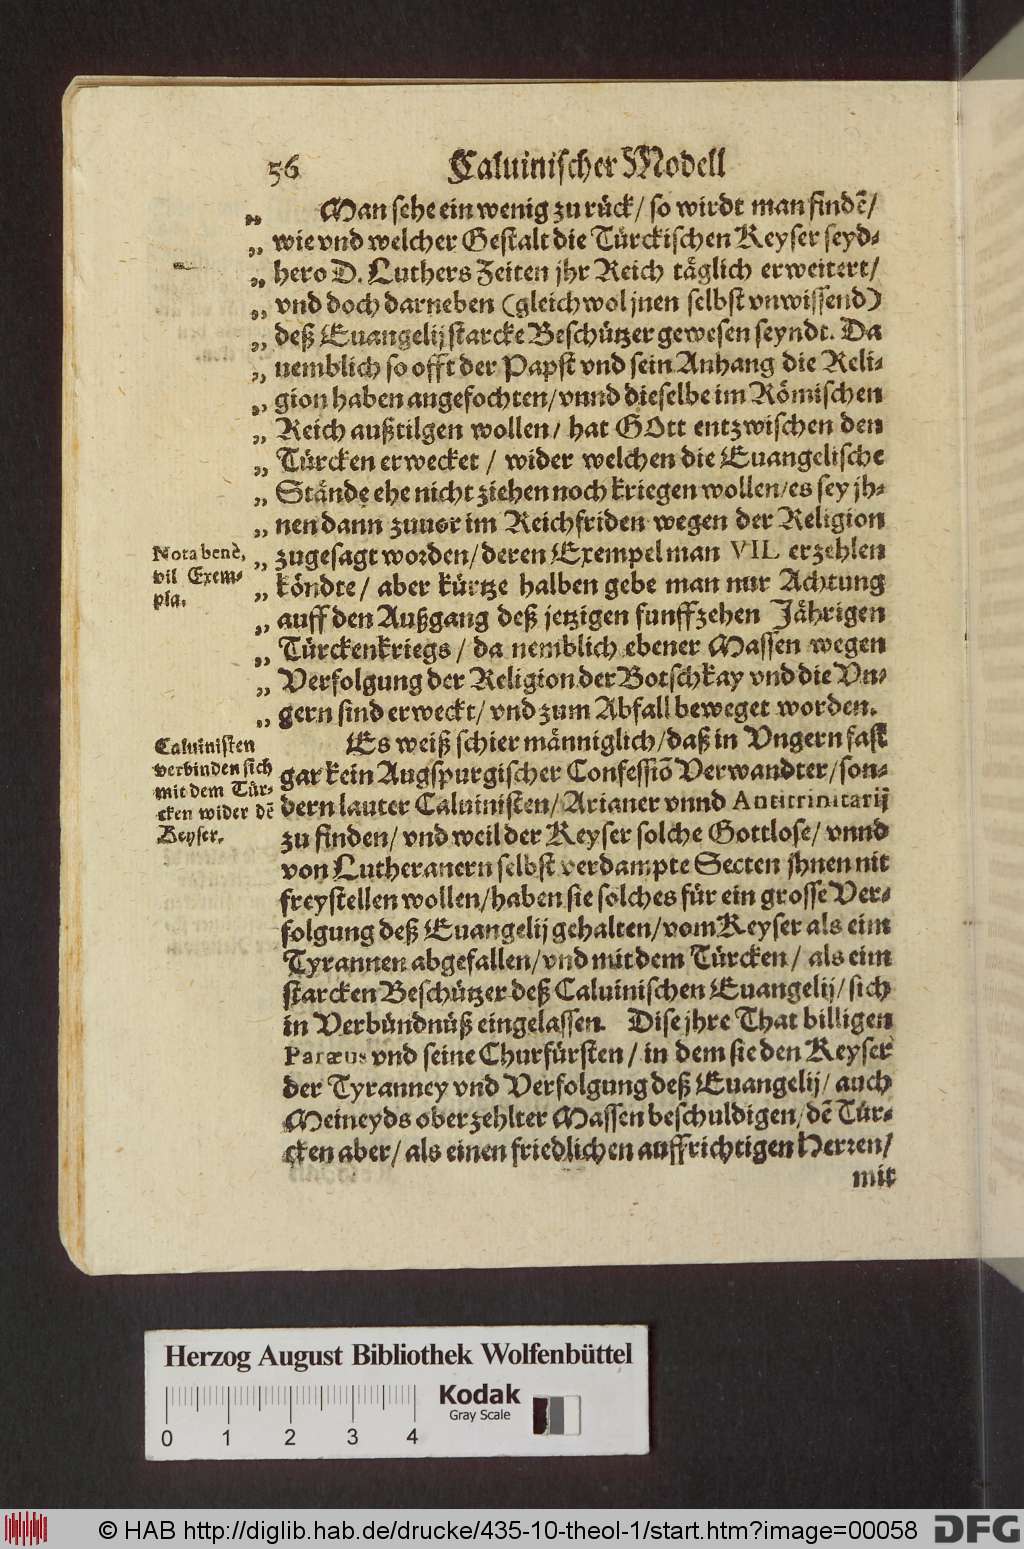 56 Caluinischer Modell
„ Man sehe ein wenig zu rück/ so wirdt man findẽ/
„ wie vnd welcher Gestalt die Türckischen Keyser seyd-
„ hero D. Luthers Zeiten jhr Reich täglich erweitert/
„ vnd doch darneben (gleichwol jnen selbst vnwissend)
„ deß Euangelij starcke Beschützer gewesen seyndt. Da
„ nemblich so offt der Papst vnd sein Anhang die Reli-
„ gion haben angefochten/ vnnd dieselbe im Römischen
„ Reich außtilgen wollen/ hat GOtt entzwischen den
„ Türcken erwecket / wider welchen die Euangelische
„ Stände ehe nicht ziehen noch kriegen wollen/ es sey jh-
„ nen dann zuuor im Reichfriden wegen der Religion
„ zugesagt worden/ deren Exempel man VII. erzehlen
„ köndte/ aber kürtze halben gebe man nur Achtung
„ auff den Außgang deß jetzigen funffzehen Jährigen
„ Türckenkriegs / da nemblich ebener Massen wegen
„ Verfolgung der Religion der Botschkay vnd die Vn-
„ gern sind erweckt/ vnd zum Abfall beweget worden.
Nota benè,
vil Exem-
pla.
Es weiß schier männiglich/ daß in Vngern fast
gar kein Augspurgischer Confessiõ Verwandter/ son-
dern lauter Caluinisten/ Arianer vnnd Antitrinitarij
zu finden/ vnd weil der Keyser solche Gottlose/ vnnd
von Lutheranern selbst verdampte Secten jhnen nit
freystellen wollen/ haben sie solches für ein grosse Ver-
folgung deß Euangelij gehalten/ vom Keyser als eim
Tyrannen abgefallen/ vnd mit dem Türcken/ als eim
starcken Beschützer deß Caluinischen Euangelij/ sich
in Verbündnüß eingelassen. Dise jhre That billigen
Paræus vnd seine Churfürsten / in dem sie den Keyser
der Tyranney vnd Verfolgung deß Euangelij/ auch
Meineyds oberzehlter Massen beschuldigen/ dẽ Tür-
cken aber/ als einen friedlichen auffrichtigen Herren/
mit
Caluinisten
verbinden sich
mit dem Tür-
cken wider dẽ
Keyser.
Herzog August Bibliothek Wolfenbüttel
Kodak
Gray Scale
0 1 2 3 4
© HAB http://diglib.hab.de/drucke/435-10-theol-1/start.htm?image=00058
DFG